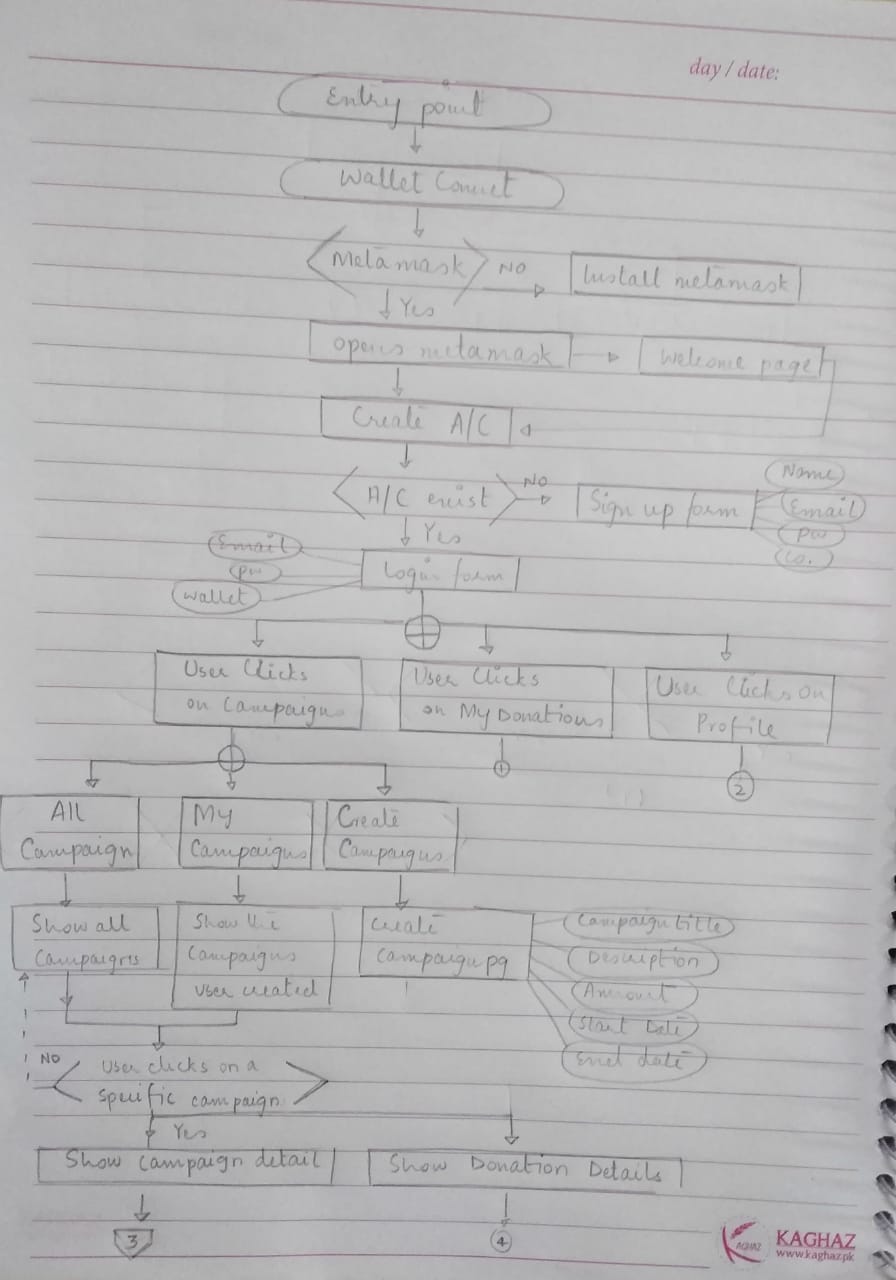 day / date:
Entry point
Wallet Connect
Metamask
NO
Install metamask
Yes
opens metamask
Welcome page
Create A/C
A/C exist
NO
Sign up form
Name
Email
pw
Co.
Yes
Email
pw
wallet
Login form
User Clicks
on Campaigns
User Clicks
on My Donations
User Clicks on
Profile
1
2
All
Campaign
My
Campaigns
Create
Campaigns
Show all
Campaigns
Show the
Campaigns
user created
Create
Campaign pg
Campaign title
Description
Amount
Start Date
End date
NO
User clicks on a
specific campaign
Yes
Show Campaign detail
Show Donation Details
3
4
KAGHAZ
KAGHAZ
www.kaghaz.pk